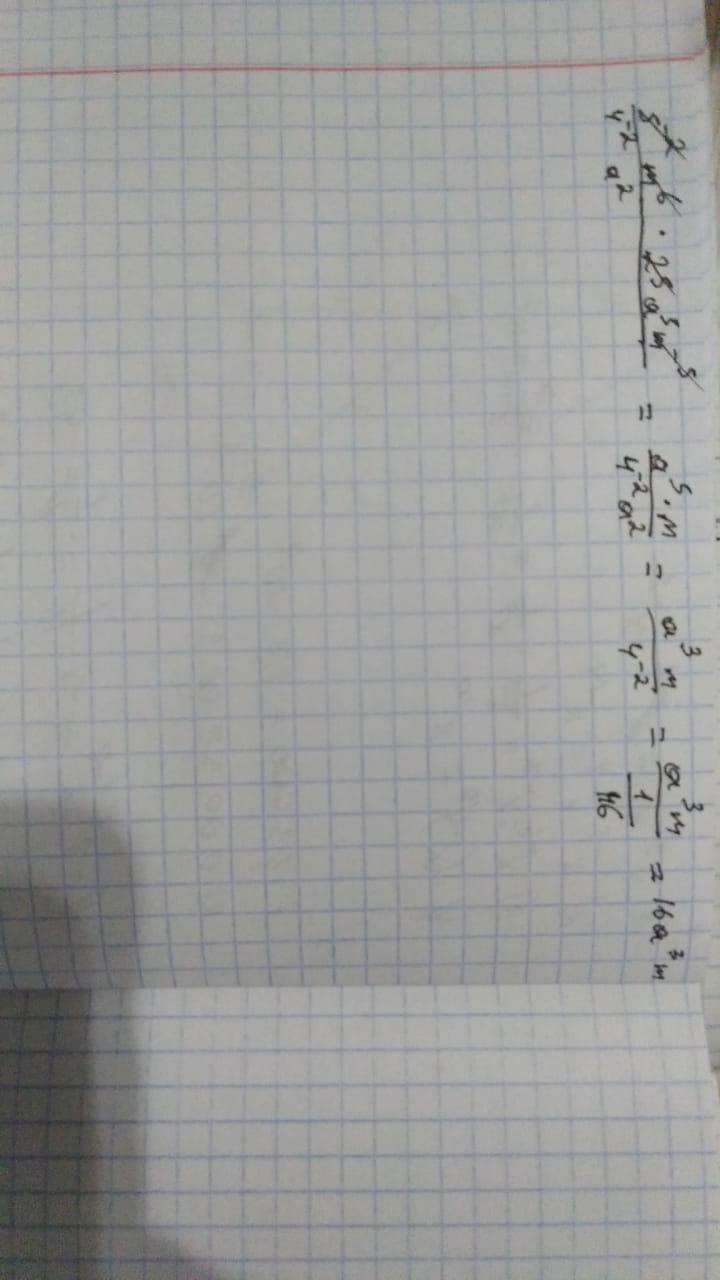 \frac{5^{-2} m^6 \cdot 25 a^5 m^{-5}}{4^{-2} a^2} = \frac{a^5 \cdot m}{4^{-2} a^2} = \frac{a^3 m}{4^{-2}} = \frac{a^3 m}{\frac{1}{16}} = 16a^3 m